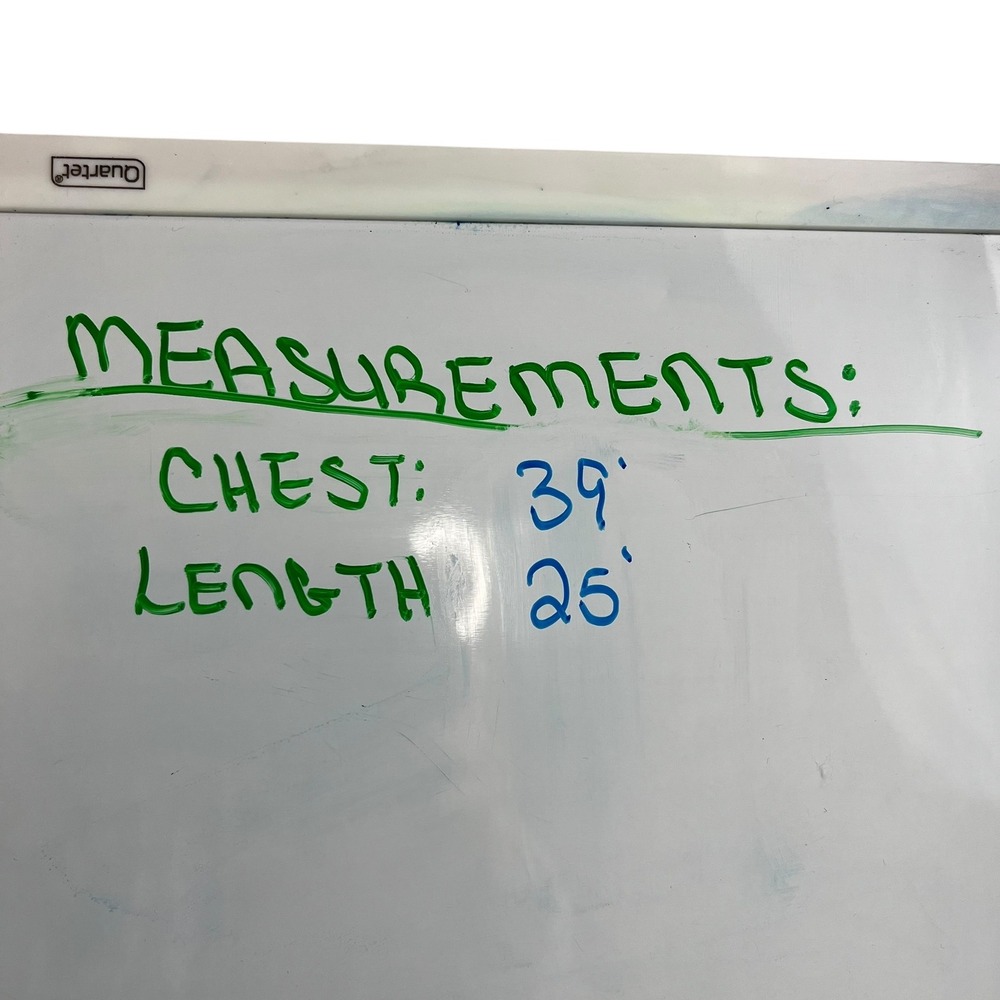 Quartet®
MEASUREMENTS:
CHEST: 39'
LENGTH 25'